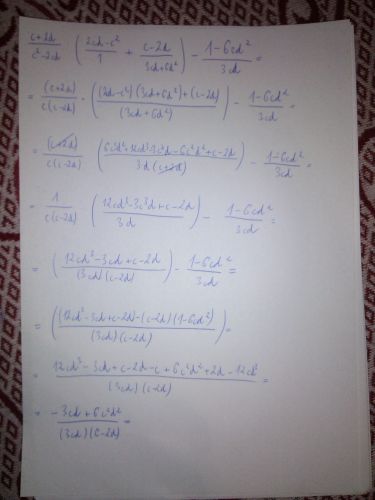 \frac{c+2d}{c^2-2cd} \left( \frac{2cd-c^2}{1} + \frac{c-2d}{3cd+6d^2} \right) - \frac{1-6cd^2}{3cd} =
= \frac{(c+2d)}{c(c-2d)} \cdot \left( \frac{(2d-c^2)(3cd+6d^2)+(c-2d)}{(3cd+6d^2)} \right) - \frac{1-6cd^2}{3cd} =
= \frac{(c+2d)}{c(c-2d)} \left( \frac{6cd^2+12d^3-3c^3d-6c^2d^2+c-2d}{3d(c+2d)} \right) - \frac{1-6cd^2}{3cd} =
= \frac{1}{c(c-2d)} \left( \frac{12cd^3-3c^3d+c-2d}{3d} \right) - \frac{1-6cd^2}{3cd} =
= \left( \frac{12cd^3-3cd+c-2d}{(3cd)(c-2d)} \right) - \frac{1-6cd^2}{3cd} =
= \left( \frac{(12cd^3-3cd+c-2d-(c-2d)(1-6cd^2)}{(3cd)(c-2d)} \right) =
= \frac{12cd^3-3cd+c-2d-c+6c^2d^2+2d-12cd^3}{(3cd)(c-2d)} =
= \frac{-3cd+6c^2d^2}{(3cd)(c-2d)} =